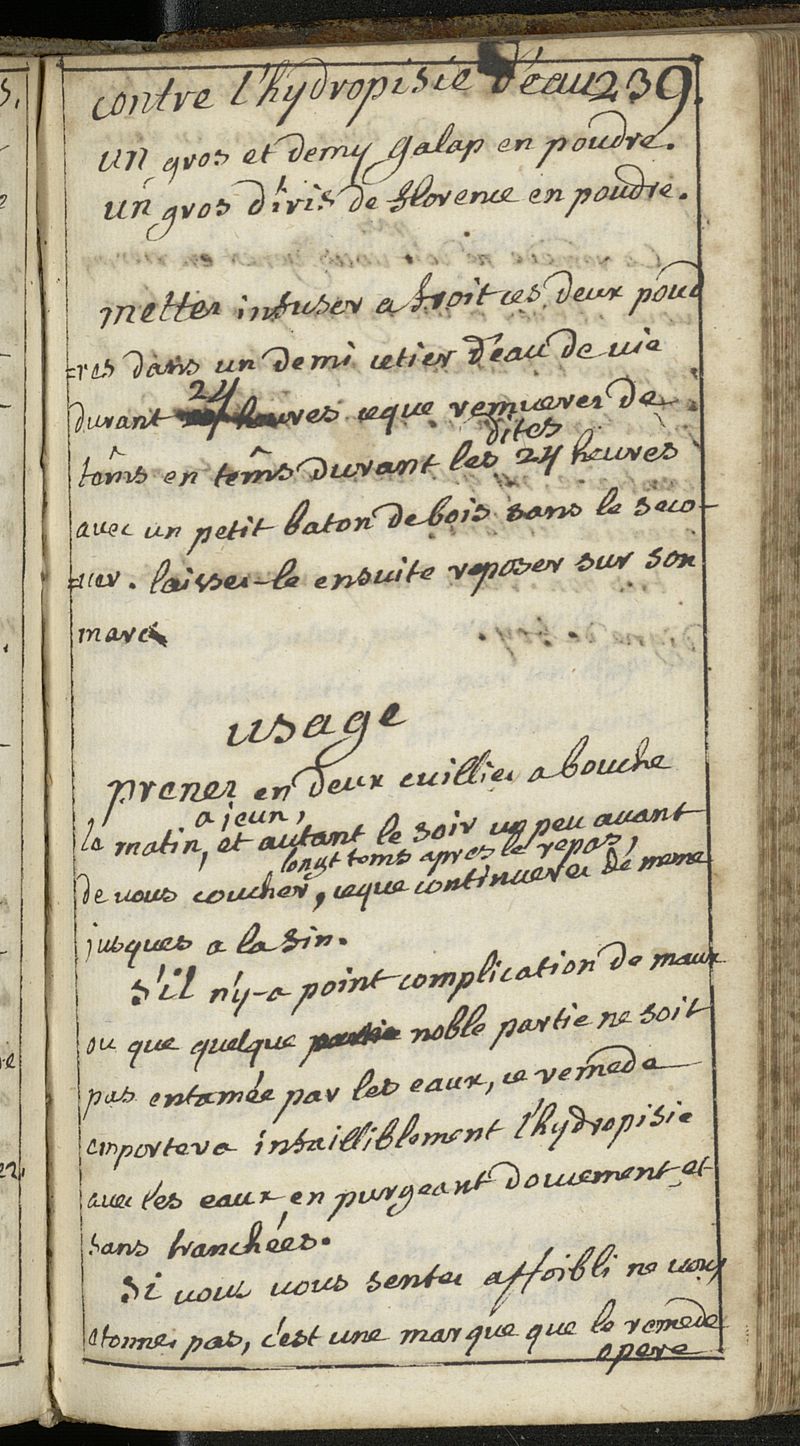 contre l'hydropisie d'eau 239.
un gros et demy galap en poudre.
un gros d'iris de florence en poudre.
mettez infuser a froit ces deux poud
=res dans un demi cetier d'eau de vie
24
durant heures ceque remuerez de
dites
tems en tems durant les 24 heures
avec un petit baton de bois sans le seco-
=uer. laissez-le ensuite reposer sur son
marc
usage
prenez en deux cuilliez a bouche
a jeun,
le matin, et autant le soir un peu avant
longt tems apres le repas,
de vous coucher, ceque continuerez de meme
jusques a la fin.
s'il n'y-a point complication de maux
ou que quelque noble partie ne soit
pas entamée par les eaux, ce remede
emportera infailliblement l'hydropisie
avec les eaux en purgeant doucement et
sans tranchées.
Si vous vous sentez affoibli ne vous
etonnez pas, c'est une marque que le remede
opere